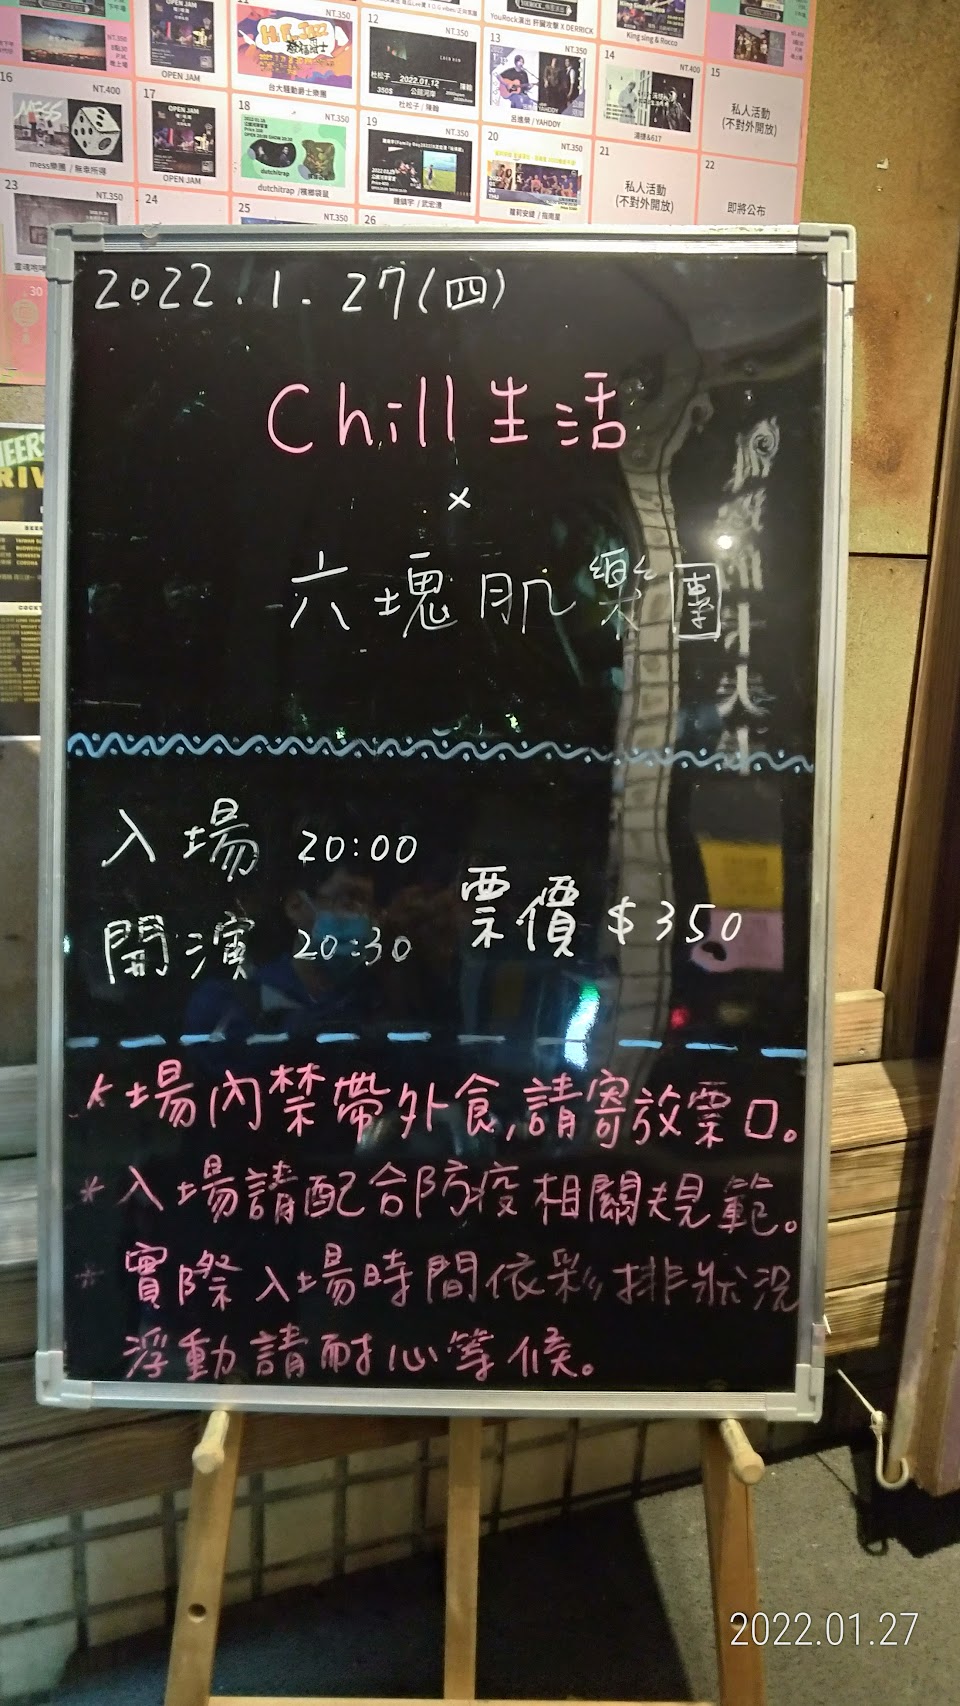 NT.350
12
NT.350
13
YouRock演出 肝臟攻擊 X DERRICK
King sing & Rocco
OPEN JAM
台大騷動爵士樂團
2022.01.12
杜松子 / 陳翰
呂進榮 / YAHDDY
14
NT.400
15
私人活動
(不對外開放)
16
NT.400
17
OPEN JAM
18
NT.350
19
NT.350
20
NT.350
21
22
mess樂團 / 無幸所得
OPEN JAM
dutchitrap / 檳榔袋鼠
鍾鎮宇 / 武宏澧
私人活動
(不對外開放)
即將公布
23
NT.350
24
25
NT.350
26
30
2022.1.27(四)
Chill生活
x
六塊肌樂團
入場 20:00
開演 20:30
票價 $350
*場內禁帶外食,請寄放票口。
*入場請配合防疫相關規範。
*實際入場時間依彩排狀況
浮動請耐心等候。
2022.01.27